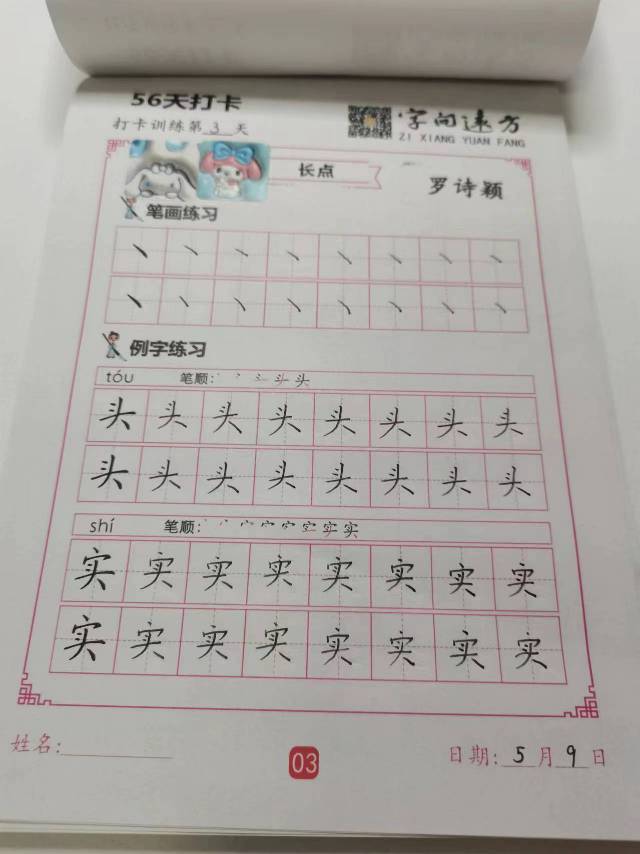 56天打卡
打卡训练第3天
字向远方
ZI XIANG YUAN FANG
长点
罗诗颖
笔画练习
丶丶丶丶丶丶丶丶
丶丶丶丶丶丶丶丶
例字练习
tóu 笔顺:
头头头头头头头头
头头头头头头头头
shí 笔顺:
实实实实实实实实
实实实实实实实实
姓名:
03
日期:5月9日